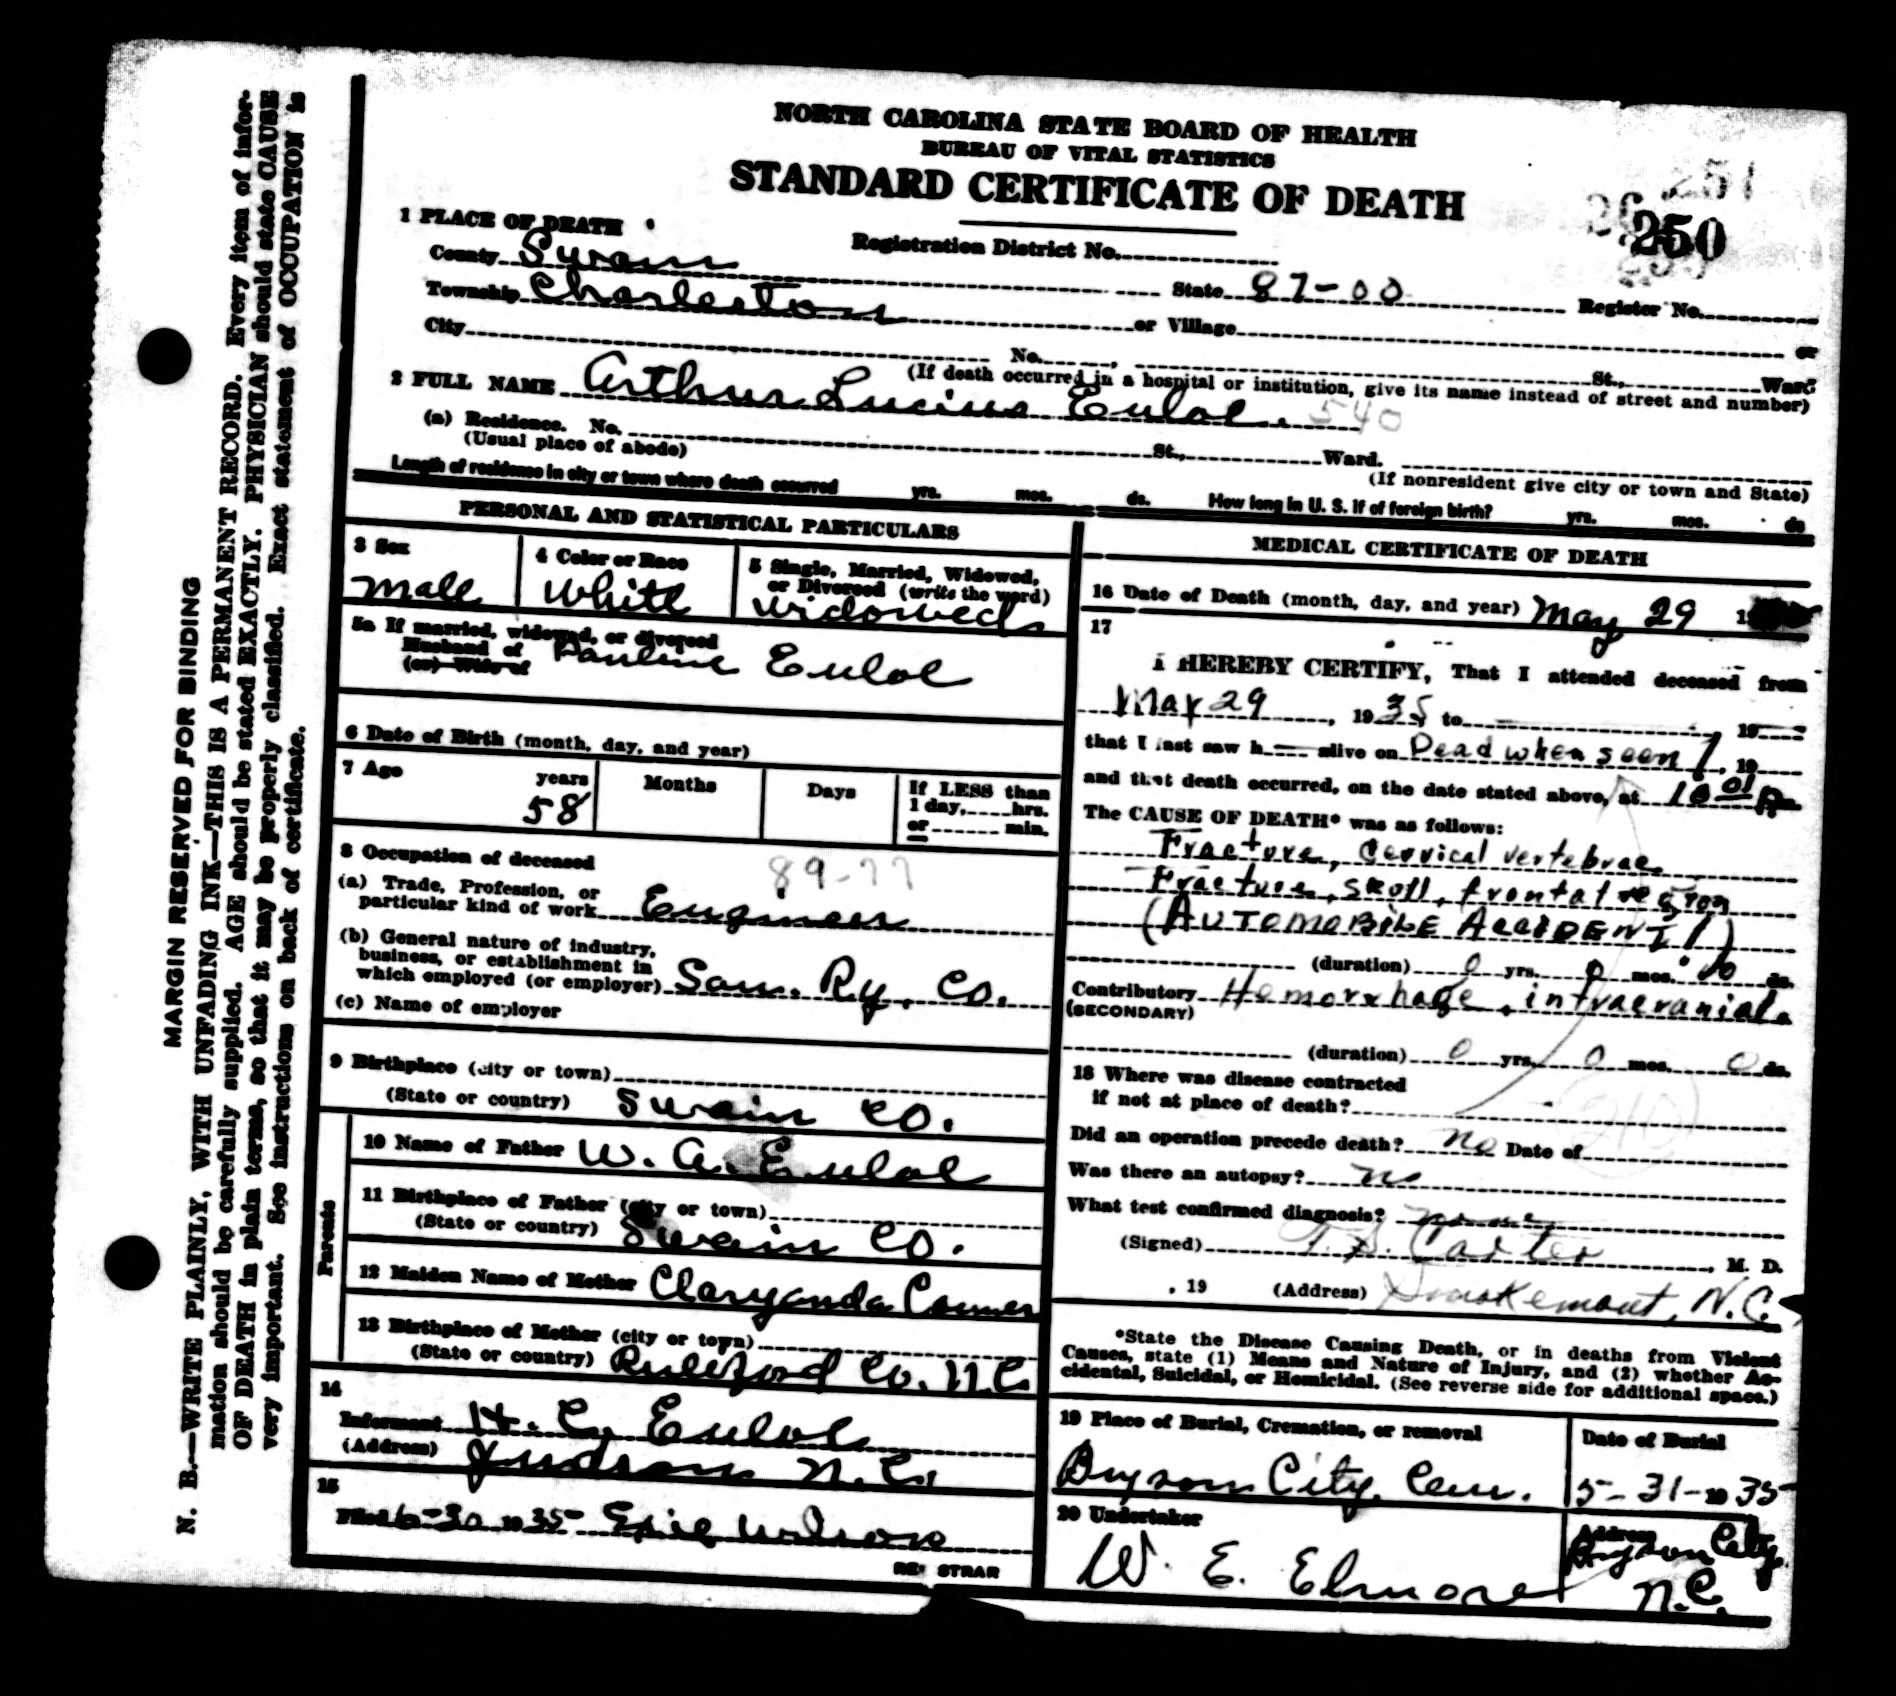 NORTH CAROLINA STATE BOARD OF HEALTH
BUREAU OF VITAL STATISTICS
STANDARD CERTIFICATE OF DEATH
251
250
1 PLACE OF DEATH
Registration District No.
County Swain
State 87-00
Register No.
Township Charleston
or Village
or
City
No. , St., Ward
(If death occurred in a hospital or institution, give its name instead of street and number)
2 FULL NAME Arthur Lucius Euloe. 540
(a) Residence. No. St., Ward.
(Usual place of abode)
(If nonresident give city or town and State)
Length of residence in city or town where death occurred yrs. mos. ds. How long in U. S. if of foreign birth? yrs. mos. ds
PERSONAL AND STATISTICAL PARTICULARS
3 Sex
male
4 Color or Race
White
5 Single, Married, Widowed,
or Divorced (write the word)
Widowed
5a If married, widowed, or divorced
Husband of
(or) Wife of
Pauline Euloe
6 Date of Birth (month, day, and year)
7 Age
years
58
Months
Days
If LESS than
1 day, hrs.
or min.
8 Occupation of deceased
89-77
(a) Trade, Profession, or
particular kind of work Engineer
(b) General nature of industry,
business, or establishment in
which employed (or employer) Sou. Ry. Co.
(c) Name of employer
9 Birthplace (city or town)
(State or country) Swain Co.
Parents
10 Name of Father W. A. Euloe
11 Birthplace of Father (city or town)
(State or country) Swain Co.
12 Maiden Name of Mother Claryanda Conner
13 Birthplace of Mother (city or town)
(State or country) Co. N.C.
14
Informant H. C. Euloe
(Address) Judson N.C.
15
Filed 6-30 1935 Wilson
REGISTRAR
MEDICAL CERTIFICATE OF DEATH
16 Date of Death (month, day, and year) May 29
17
I HEREBY CERTIFY, That I attended deceased from
May 29, 1935 to , 19
that I last saw h alive on Dead when seen, 19
and that death occurred, on the date stated above, at m.
The CAUSE OF DEATH* was as follows:
Fracture, Cervical vertebrae.
Fracture, skull, frontal region
(AUTOMOBILE ACCIDENT)
(duration) 0 yrs. 0 mos. ds.
Contributory Hemorrhage, intracranial.
(SECONDARY)
(duration) 0 yrs. 0 mos. 0 ds.
18 Where was disease contracted
if not at place of death?
210
Did an operation precede death? no Date of
Was there an autopsy? no
What test confirmed diagnosis? none
(Signed) T. S. Carter, M. D.
, 19 (Address) Smokemont, N.C.
*State the Disease Causing Death, or in deaths from Violent
Causes, state (1) Means and Nature of Injury, and (2) whether Ac-
cidental, Suicidal, or Homicidal. (See reverse side for additional space.)
19 Place of Burial, Cremation, or removal
Bryson City Cem.
Date of Burial
5-31-1935
20 Undertaker
W. E. Elmore
Address
Bryson City
N.C.
MARGIN RESERVED FOR BINDING
N. B.—WRITE PLAINLY, WITH UNFADING INK—THIS IS A PERMANENT RECORD. Every item of infor-
mation should be carefully supplied. AGE should be stated EXACTLY. PHYSICIAN should state CAUSE
OF DEATH in plain terms, so that it may be properly classified. Exact statement of OCCUPATION is
very important. See instructions on back of certificate.